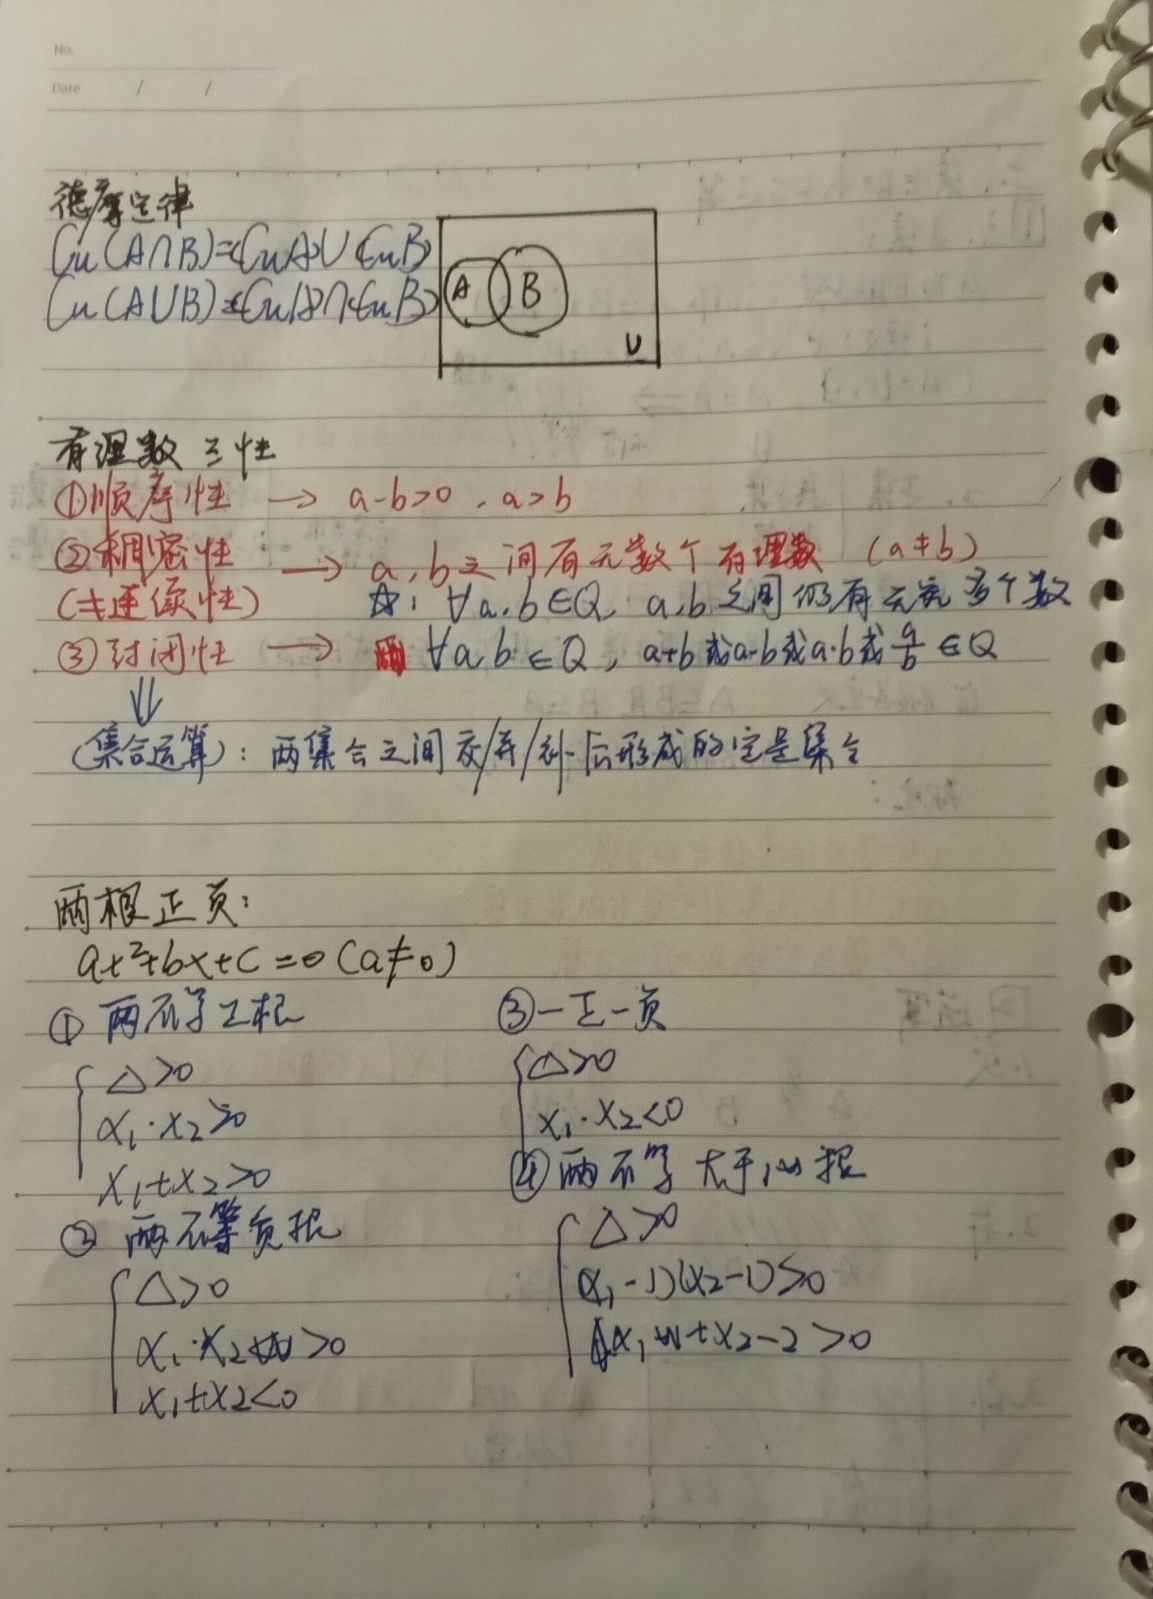 No.
Date / /
德摩定律
Cu(A∩B)=(CuA)∪(CuB)
Cu(A∪B)=(CuA)∩(CuB)
A B
U
有理数三性
①顺序性 → a-b>0，a>b
②稠密性 → a，b之间有无数个有理数 (a≠b)
(≠连续性) ☆：∀a,b∈Q，a,b之间仍有无穷多个数
③封闭性 → ∀a,b∈Q，a+b或a-b或a·b或a/b∈Q
⇓
(集合运算)：两集合之间交/并/补后形成的定是集合
两根正负：
ax²+bx+c=0(a≠0)
① 两不等正根
△>0
x₁·x₂>0
x₁+x₂>0
② 两不等负根
△>0
x₁·x₂>0
x₁+x₂<0
③一正一负
△>0
x₁·x₂<0
④两不等大于1的根
△>0
(x₁-1)(x₂-1)>0
x₁+x₂-2>0